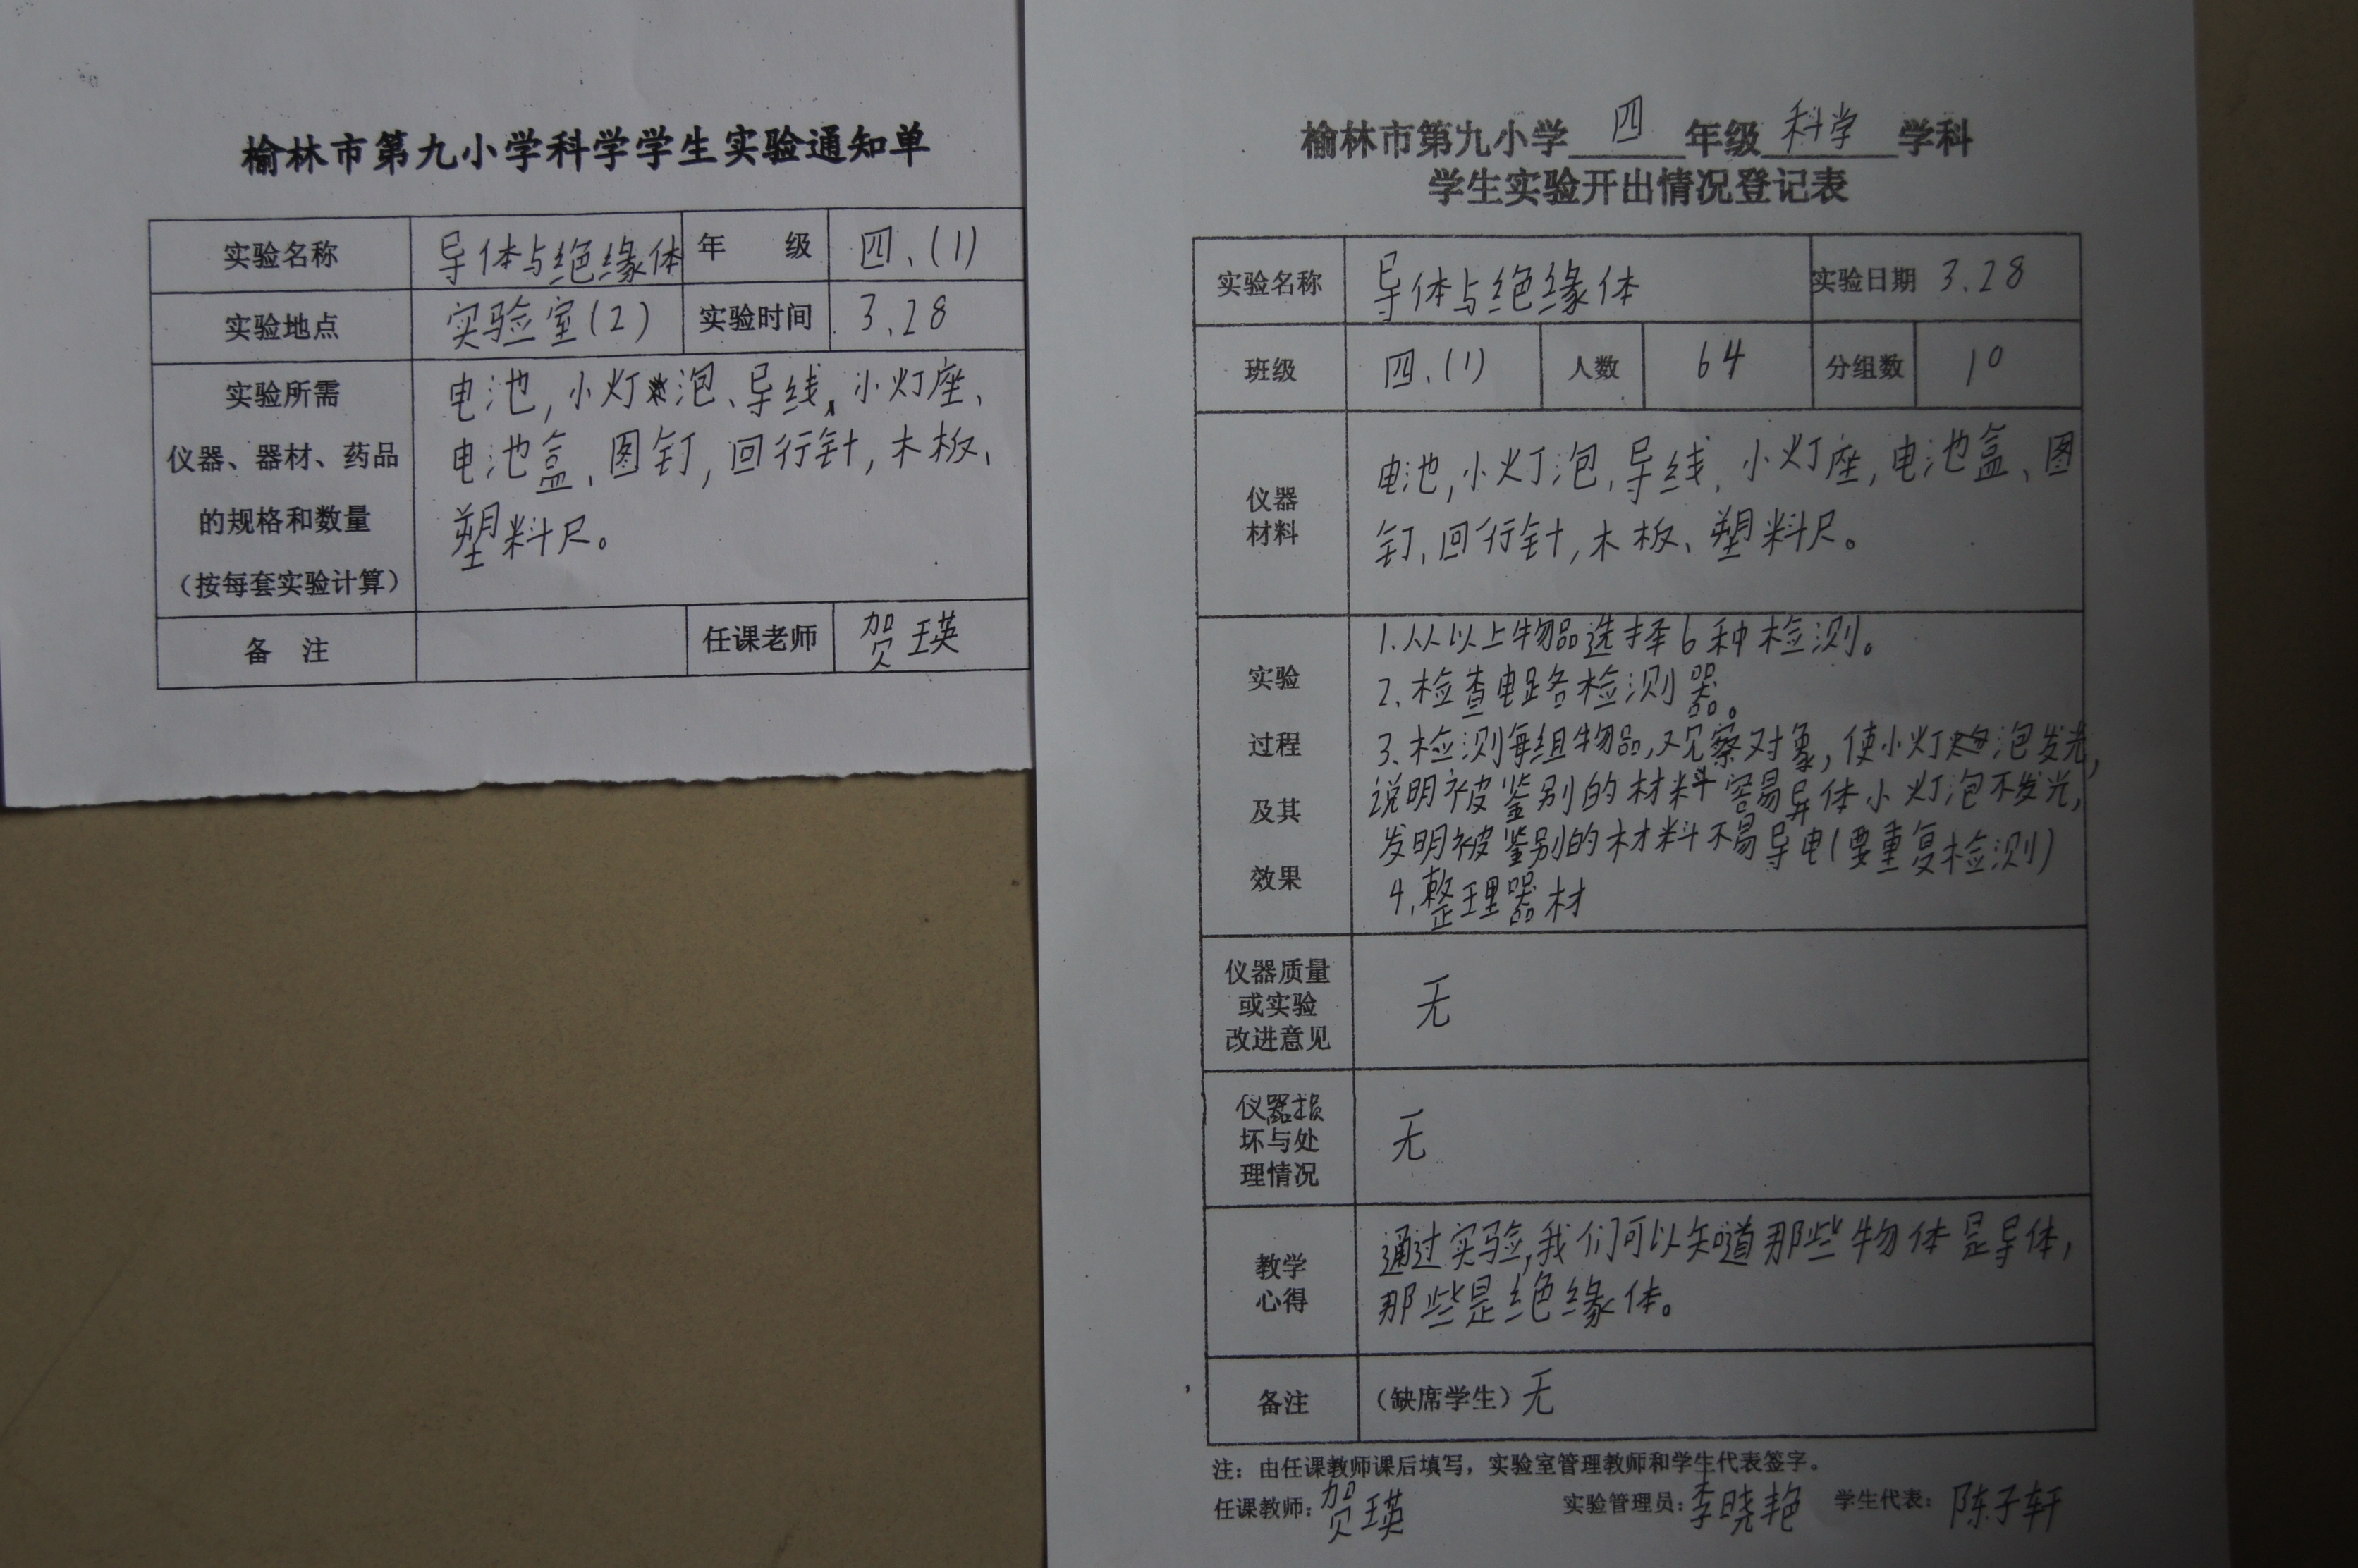 榆林市第九小学科学学生实验通知单
实验名称 导体与绝缘体 年 级 四、(1)
实验地点 实验室(2) 实验时间 3.28
实验所需
仪器、器材、药品
的规格和数量
(按每套实验计算)
电池,小灯泡、导线,小灯座、
电池盒、图钉,回行针,木板、
塑料尺。
备 注 任课老师 贺瑛
榆林市第九小学 四 年级 科学 学科
学生实验开出情况登记表
实验名称 导体与绝缘体 实验日期 3.28
班级 四.(1) 人数 64 分组数 10
仪器
材料
电池,小灯泡、导线、小灯座,电池盒、图
钉、回行针,木板、塑料尺。
实验
过程
及其
效果
1.从以上物品选择6种检测。
2.检查电路检测器。
3.检测每组物品,观察对象,使小灯泡发光,
说明被鉴别的材料容易导体小灯泡不发光,
发明被鉴别的材料不易导电(要重复检测)
4.整理器材
仪器质量
或实验
改进意见
无
仪器损
坏与处
理情况
无
教学
心得
通过实验,我们可以知道那些物体是导体,
那些是绝缘体。
备注 (缺席学生)无
注:由任课教师课后填写,实验室管理教师和学生代表签字。
任课教师:贺瑛 实验管理员:李晓艳 学生代表:陈子轩